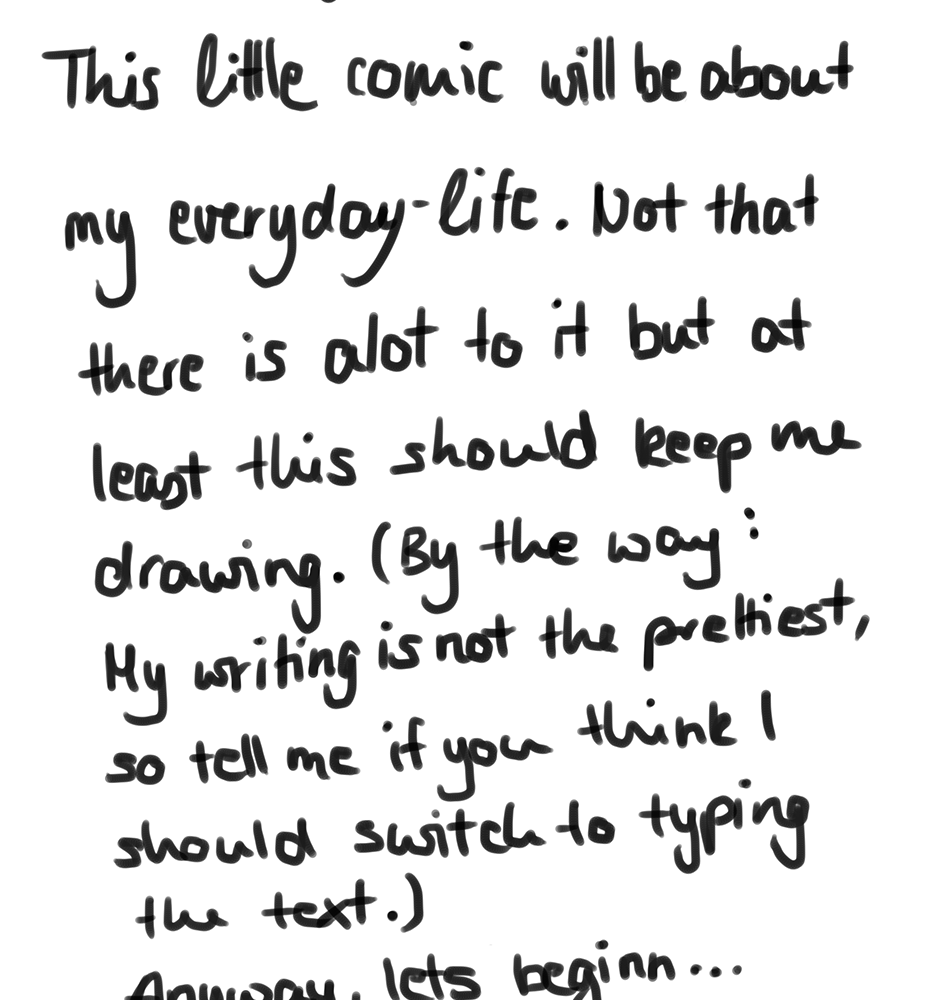 This little comic will be about
my everyday-life. Not that
there is alot to it but at
least this should keep me
drawing. (By the way:
My writing is not the prettiest,
so tell me if you think I
should switch to typing
the text.)
Anyway, lets beginn...